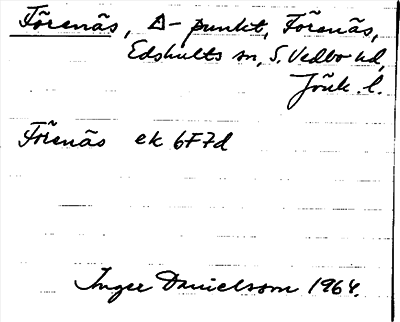 Förenäs, Δ-punkt, Förenäs,
Edshults sn, S. Vedbo hd,
Jönk. l.
Förenäs ek 6F7d
Inger Danielsson 1964.